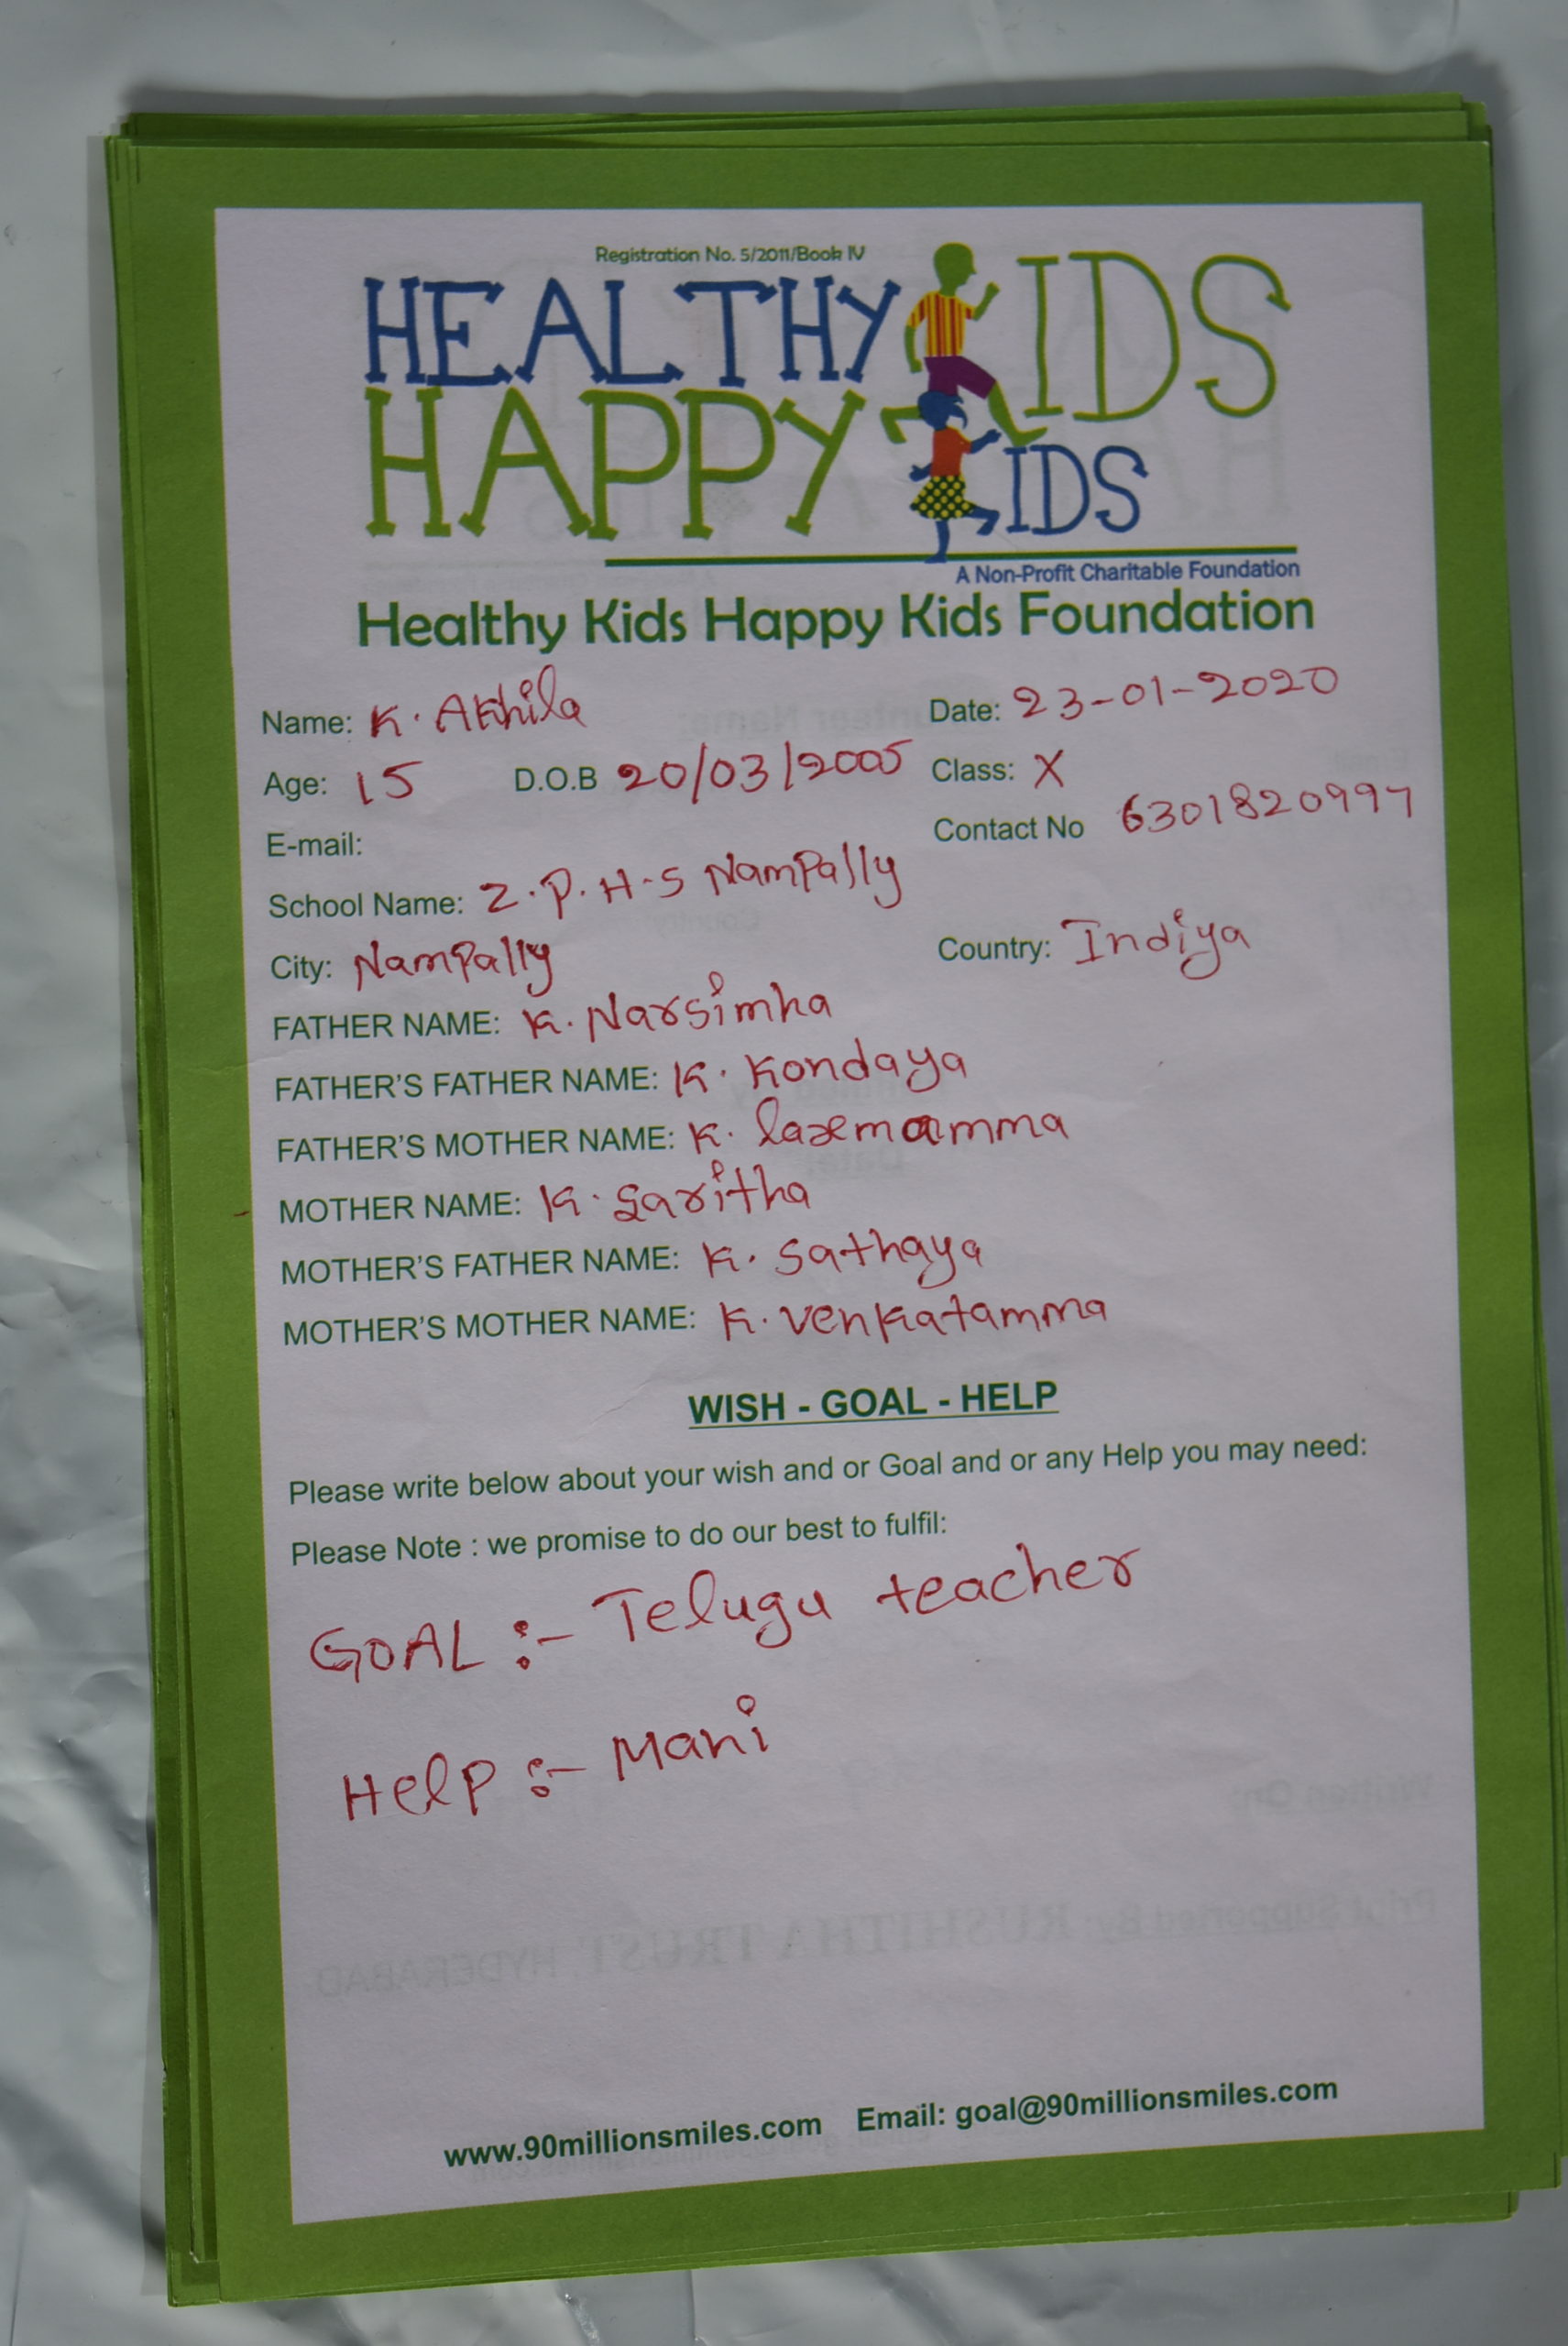 Registration No. 5/2011/Book IV
HEALTHY KIDS
HAPPY KIDS
A Non-Profit Charitable Foundation
Healthy Kids Happy Kids Foundation
Name: K. Akhila Date: 23-01-2020
Age: 15 D.O.B 20/03/2005 Class: X
E-mail: Contact No 6301820997
School Name: Z.P.H-S Nampally
City: Nampally Country: Indiya
FATHER NAME: K. Narsimha
FATHER'S FATHER NAME: K. Kondaya
FATHER'S MOTHER NAME: K. laxmamma
MOTHER NAME: K. Saritha
MOTHER'S FATHER NAME: K. Sathaya
MOTHER'S MOTHER NAME: K. Venkatamma
WISH - GOAL - HELP
Please write below about your wish and or Goal and or any Help you may need:
Please Note : we promise to do our best to fulfil:
GOAL :- Telugu teacher
Help :- Mani
www.90millionsmiles.com Email: goal@90millionsmiles.com